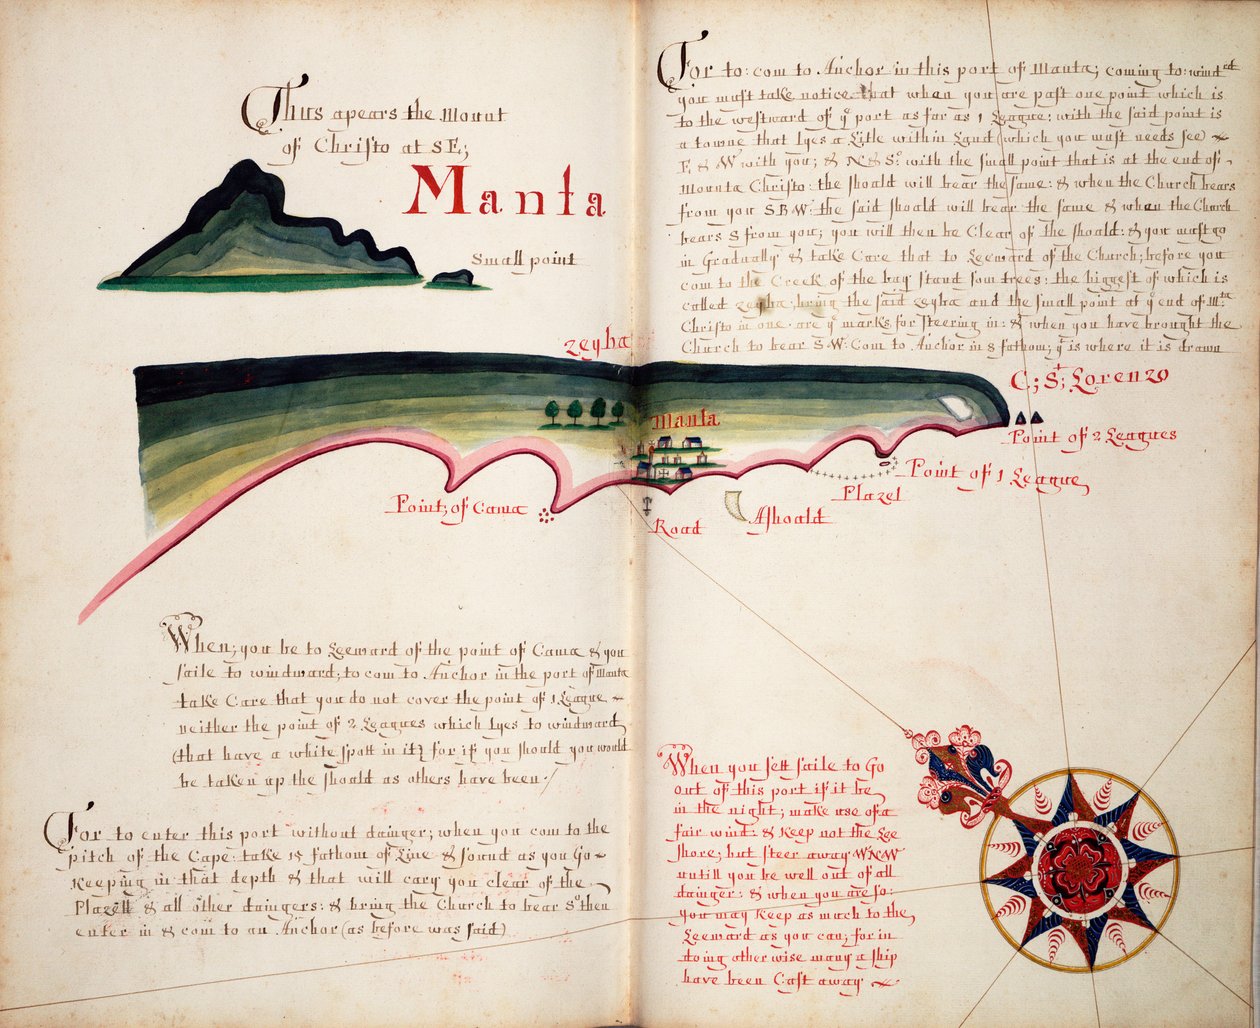 Thus apears the Mount
of Christo at SE;
Manta
Small point
For to: com to Anchor in this port of Manta; coming to: windrd
you must take notice that when you are past one point which is
to the westward of ye port as far as 1 League; with the said point is
a towne that Lyes a Litle within Land (which you must needs see)
E & W with you; & N & So with the small point that is at the end of
Mounta Christo: the shoald will bear the same: & when the Church bears
from you SBW: the said shoald will bear the same & when the Church
bears S from you; you will then be Clear of the shoald: & you must go
in Gradually & take Care that to Leeward of the Church; before you
com to the Creek of the bay stand som trees: the biggest of which is
called Zeyba; bring the said Zeyba and the small point at ye end of Mta
Christo in one are ye marks for steering in: & when you have brought the
Church to bear S.W: Com to Anchor in 8 fathom; yt is where it is drawn
zeyba
C; St; Lorenzo
Manta
Point of 2 Leagues
Point of 1 League
Plazel
Point; of Cama
Road
A shoald
When; you be to Leeward of the point of Cama & you
saile to windward; to com to Anchor in the port of Manta
take Care that you do not cover the point of 1 League
neither the point of 2 Leagues which Lyes to windward
(that have a white spott in it) for if you should you would
be taken up the shoald as others have been /
For to enter this port without dainger; when you com to the
pitch of the Cape: take 15 fathom of Line & sound as you Go
Keeping in that depth & that will cary you clear of the
Plazell & all other daingers: & bring the Church to bear So then
enter in & com to an Anchor (as before was said)
When you sett saile to Go
out of this port if it be
in the night; make use of a
fair wind: & Keep not the Lee
shore; but steer away WNW
untill you be well out of all
dainger: & when you are so:
you may Keep as much to the
Leeward as you can; for in
doing other wise many a ship
have been Cast away